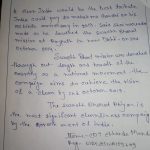 A clean India would be the best tribute
India could pay to Mahatma Gandhi on his
150 birth anniversary in 2019, Said Shri Narendra
Modi as he launched the Swachh Bharat
Mission at Rajpath in New Delhi on 2nd
October 2014.
Swachh Bharat Mission was launched
throughout length and breadth of the
country as a national movement. The
campaign aims to achieve the vision
of a clean by 2nd October 2019.
The Swachh Bharat Abhiyan is
the most significant cleanliness campaign
by the Government of India.
Name:-
Reg:-